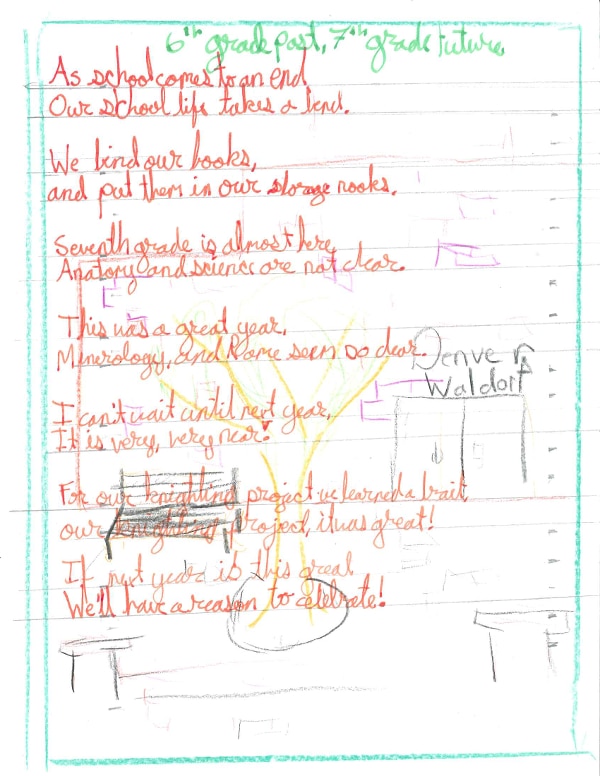 6th grade past, 7th grade future
As school comes to an end
Our school life takes a bend.
We bind our books,
and put them in our storage nooks.
Seventh grade is almost here,
Anatomy and science are not clear.
This was a great year,
Minerology, and Rome seem so dear.
Denver
Waldorf
I can't wait until next year,
It is very, very near!
For our knighting project we learned a trait,
our knighting project, it was great!
If next year is this great
We'll have a reason to celebrate!